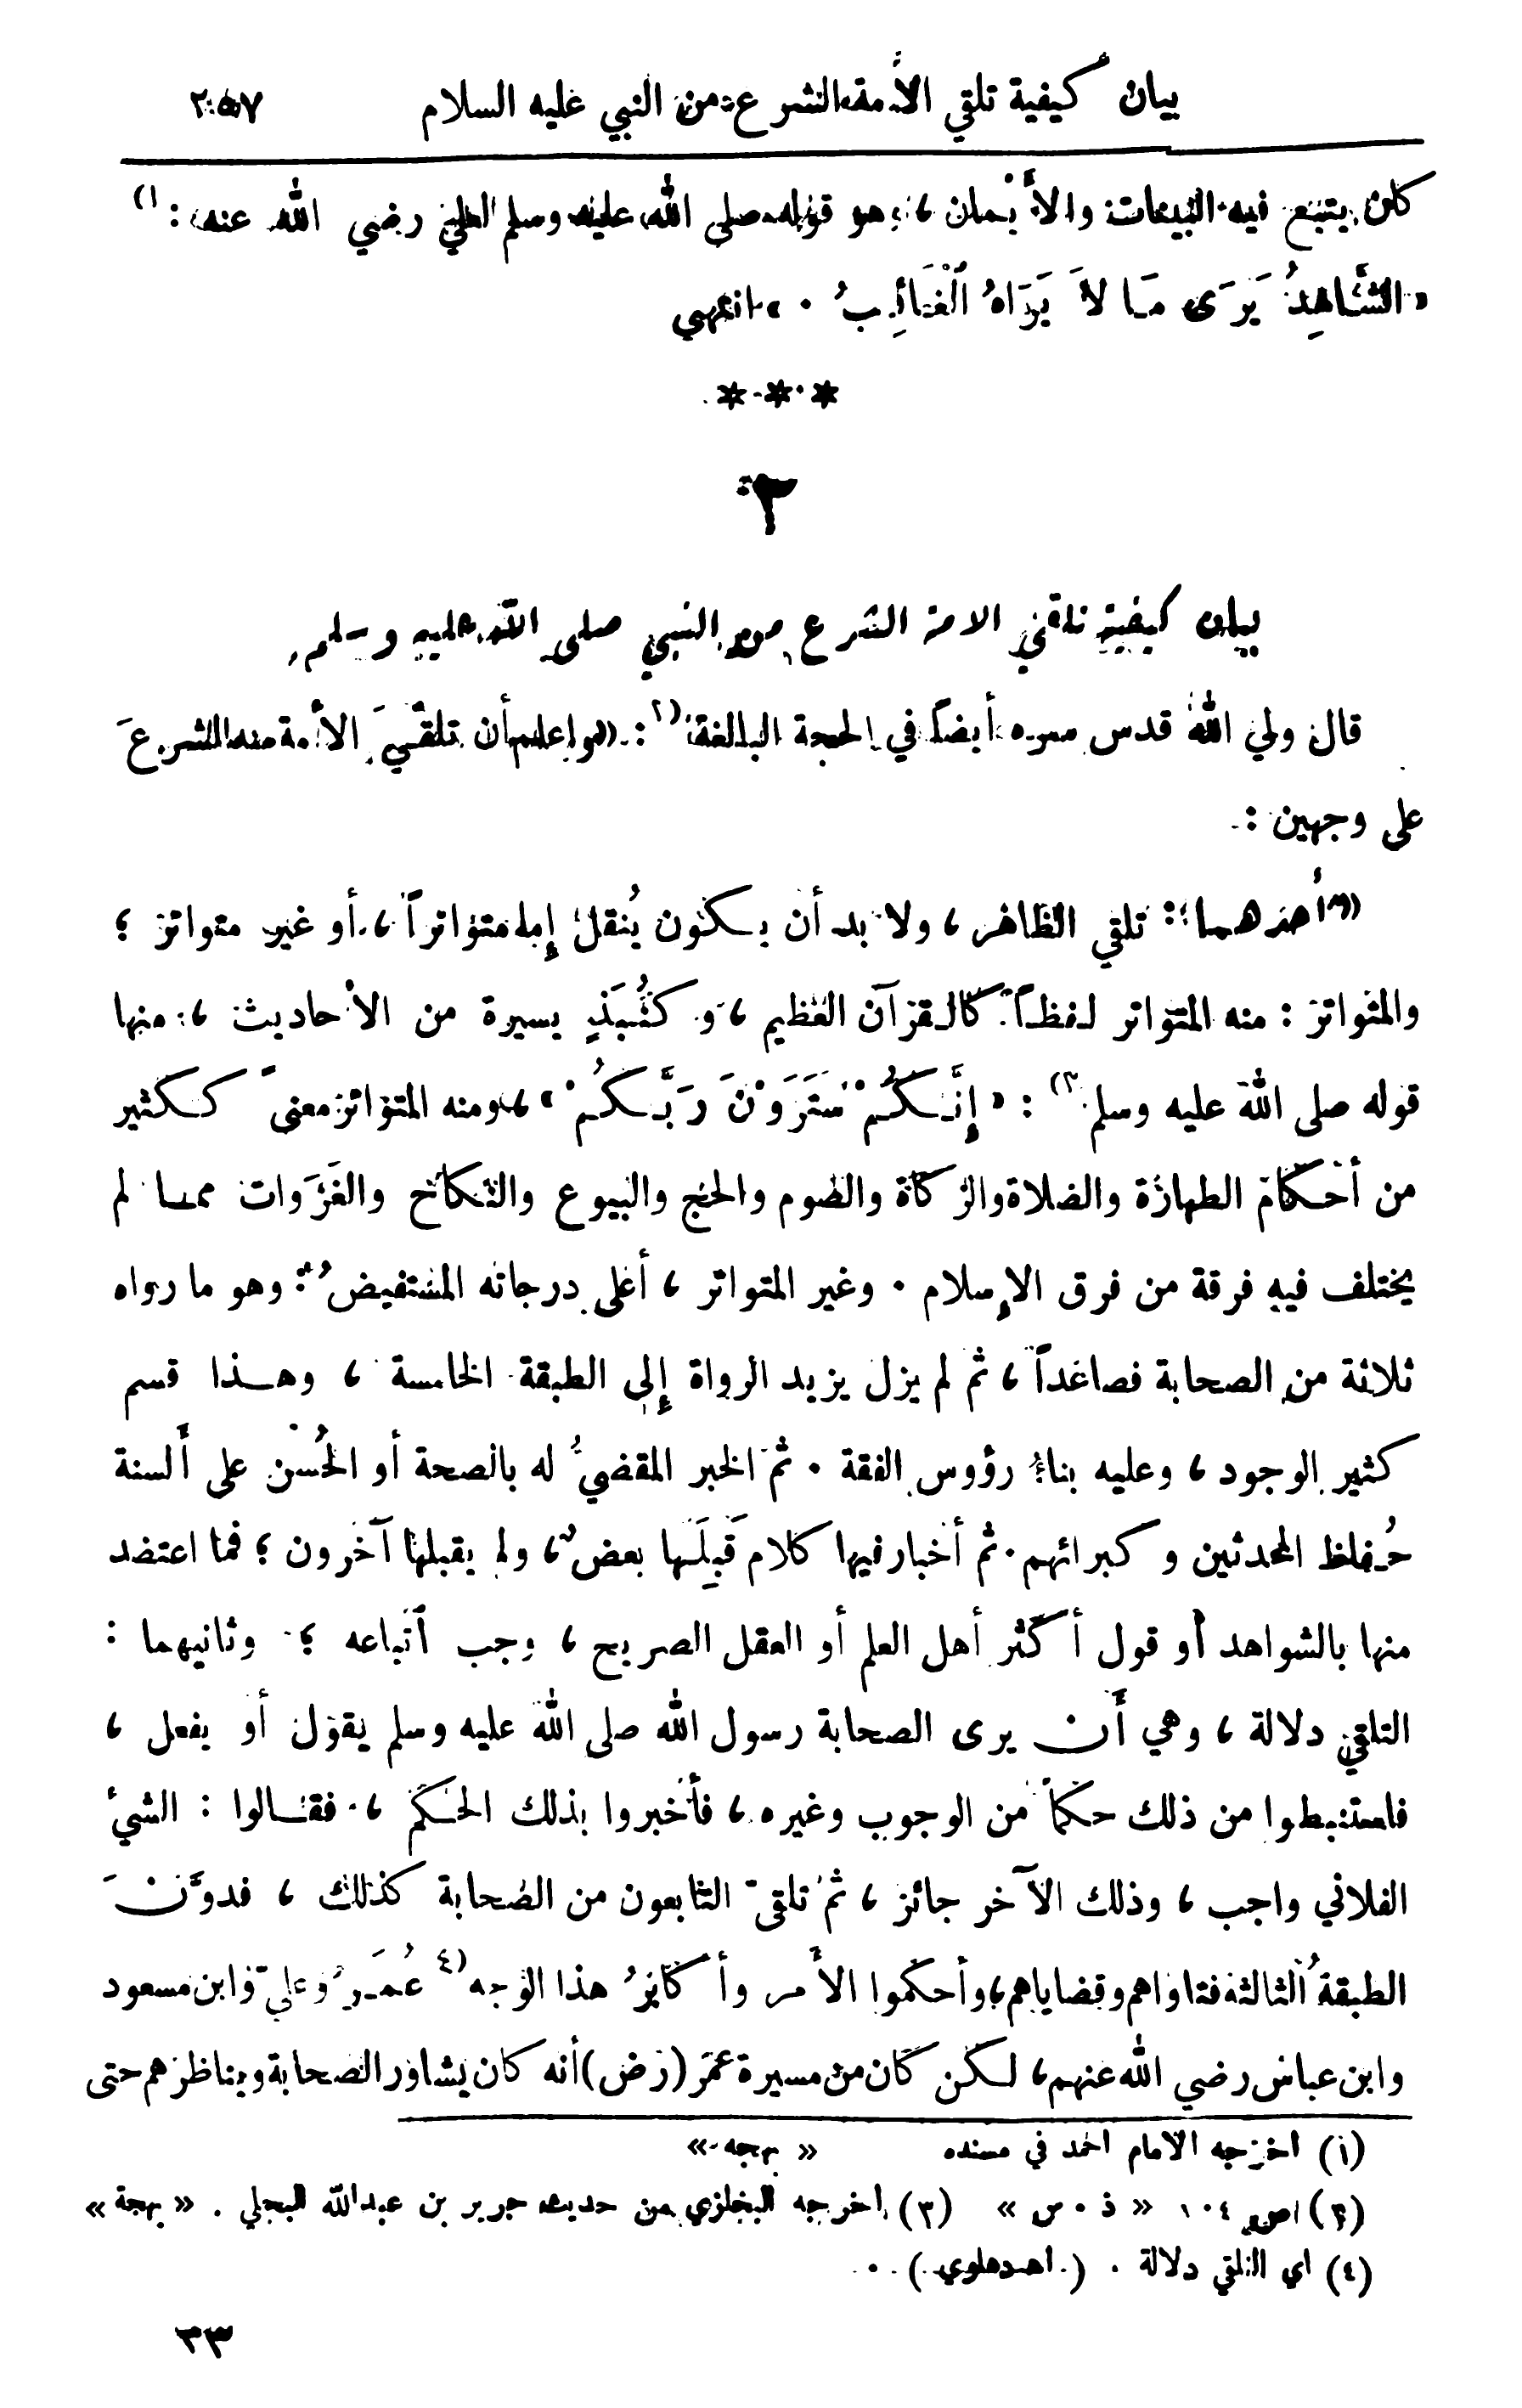 بيان كيفية تلقي الأمة الشرع من النبي عليه السلام ٢٥٧
كان يتبع فيه البيعات والأيمان ، هو قوله صلى الله عليه وسلم لعلي رضي الله عنه (١) :
« الشَّاهِدُ يَرَى مَا لاَ يَرَاهُ ٱلْغَائِبُ . » انتهى
* * *
٢
بيان كيفية تلقي الامة الشرع من النبي صلى الله عليه وسلم
قال ولي الله قدس سره أيضاً في الحجة البالغة (٢) : « واعلم أن تلقيَ الأمة منه الشرعَ
على وجهين :
« أحدهما : تلقي الظاهر ، ولا بد أن يكون يُنقل إما متواتراً ، أو غير متواتر ؛
والمتواتر : منه المتواتر لفظاً كالقرآن العظيم ، وكنُبَذٍ يسيرة من الأحاديث ، منها
قوله صلى الله عليه وسلم (٣) : « إِنَّكُمْ سَتَرَوْنَ رَبَّكُمْ » ، ومنه المتواتر معنىً ككثير
من أحكام الطهارة والصلاة والزكاة والصوم والحج والبيوع والنكاح والغَزَوات مما لم
يختلف فيه فرقة من فرق الإسلام . وغير المتواتر ، أعلى درجاته المستفيضُ : وهو ما رواه
ثلاثة من الصحابة فصاعداً ، ثم لم يزل يزيد الرواة إلى الطبقة الخامسة ، وهذا قسم
كثير الوجود ، وعليه بناءُ رؤوس الفقة . ثم الخبر المقضيُّ له بالصحة أو الحُسن على ألسنة
حُفاظ المحدثين وكبرائهم . ثم أخبار فيها كلام قَبِلَها بعضٌ ، ولم يقبلها آخرون ؛ فما اعتضد
منها بالشواهد أو قول أكثر أهل العلم أو العقل الصريح ، وجب ٱتباعه ؛ وثانيهما :
التلقي دلالة ، وهي أن يرى الصحابة رسول الله صلى الله عليه وسلم يقول أو يفعل ،
فاستنبطوا من ذلك حكماً من الوجوب وغيره ، فأخبروا بذلك الحكم ، فقالوا : الشيُ
الفلاني واجب ، وذلك الآخر جائز ، ثم تلقىّ التابعون من الصحابة كذلك ، فدوَّنَ
الطبقةُ الثالثة فتاواهم وقضاياهم ، وأحكموا الأمر وأكابرُ هذا الوجه (٤) عُمَرُ وعليّ وابن مسعود
وابن عباس رضي الله عنهم ، لكن كان من سيرة عمر (رض) أنه كان يشاور الصحابة ويناظرهم حتى
(١) اخرجه الامام احمد في مسنده « بهجه »
(٢) ص ١٠٤ « ذ . س » (٣) اخرجه البخاري من حديث جرير بن عبدالله البجلي . « بهجة »
(٤) اي التلقي دلالة . ( اهدهلوي ) .
٣٣